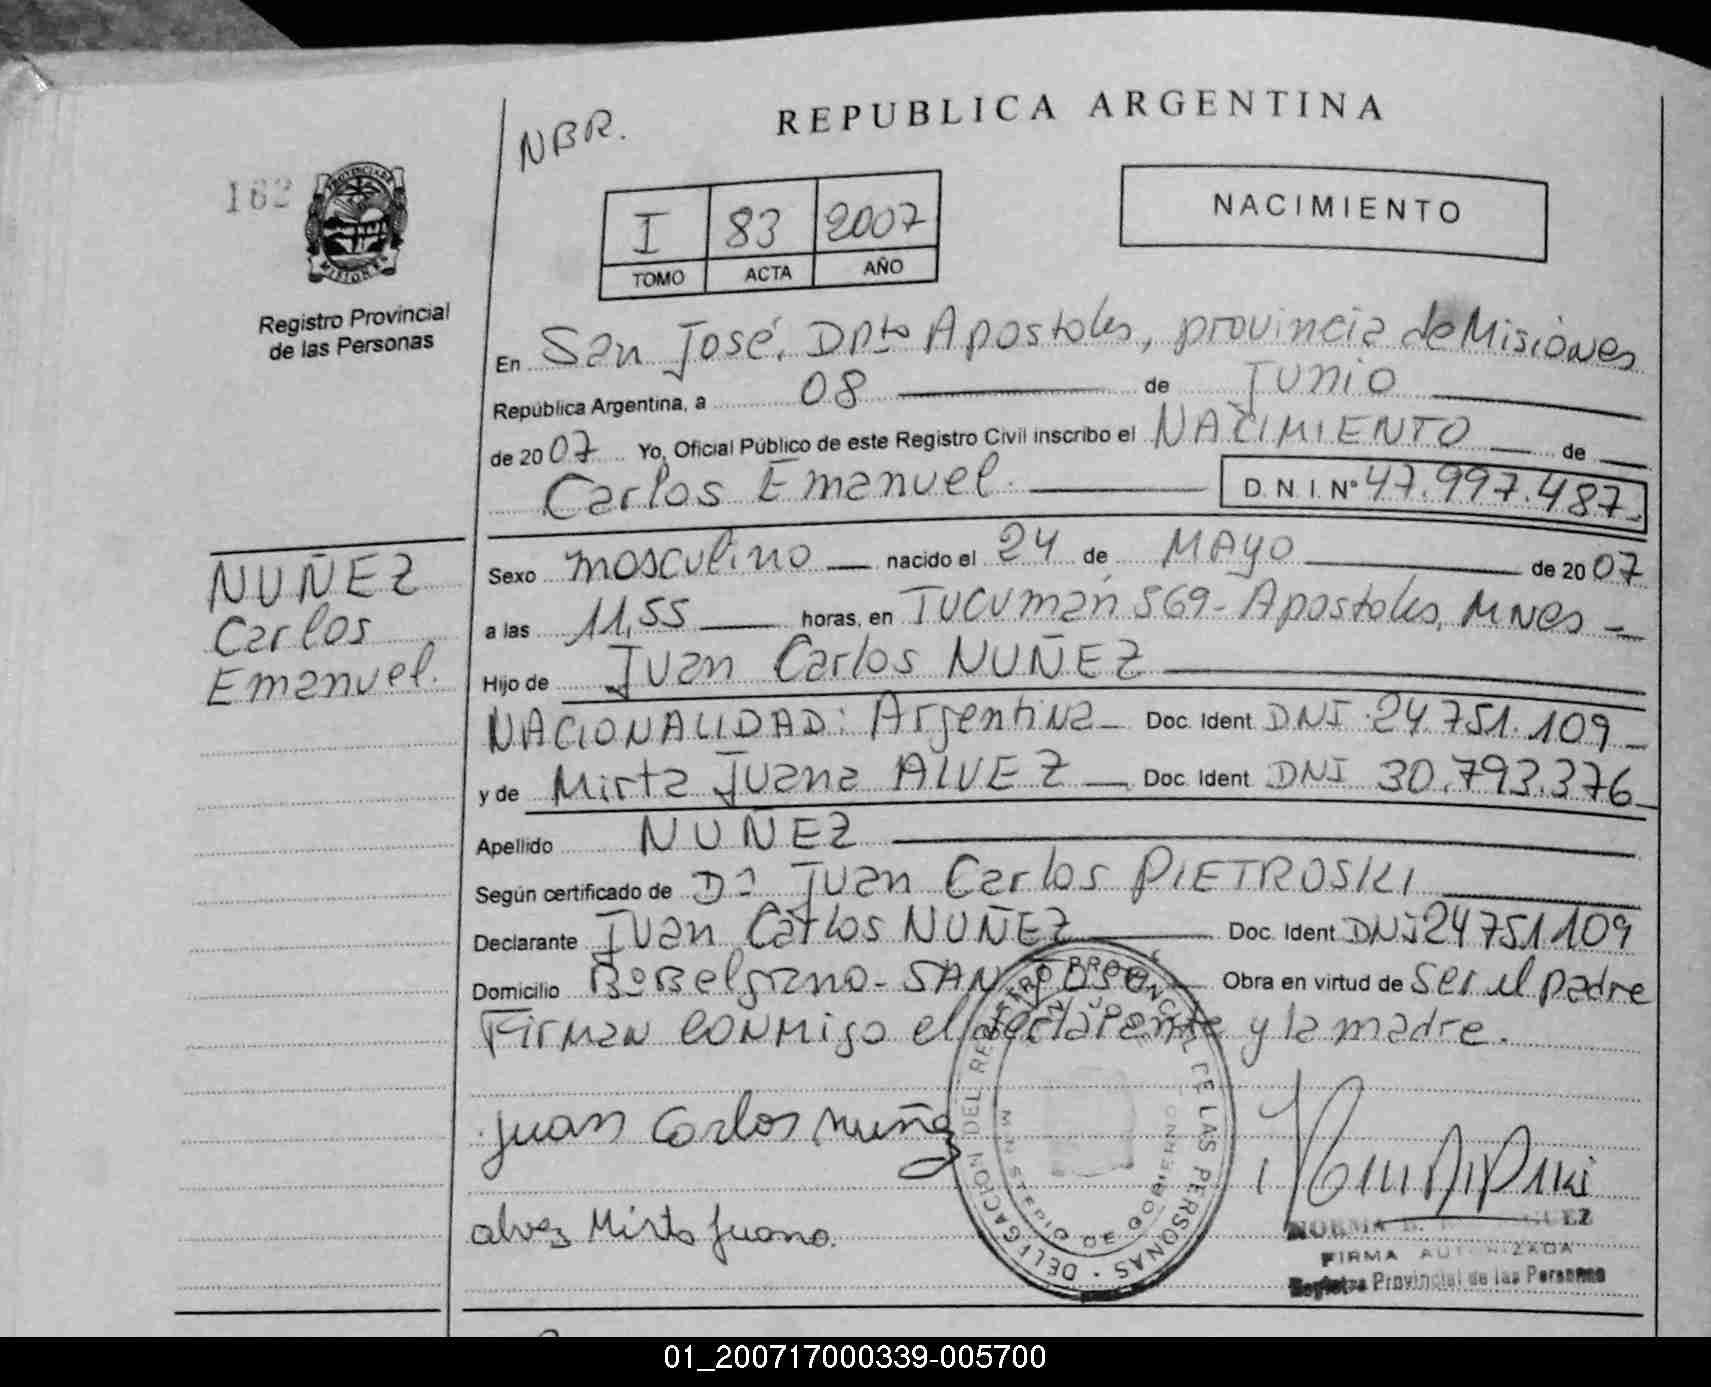 REPUBLICA ARGENTINA
NBR.
162
PROVINCIA DE
MISIONES
Registro Provincial
de las Personas
I 83 2007
TOMO ACTA AÑO
NACIMIENTO
En San José, Dpto Apostoles, provincia de Misiones
República Argentina, a 08 de Junio
de 2007 Yo, Oficial Público de este Registro Civil inscribo el NACIMIENTO de
Carlos Emanuel. D.N.I. Nº 47.997.487.
NUÑEZ
Carlos
Emanuel.
Sexo masculino nacido el 24 de MAYO de 2007
a las 11,55 horas, en Tucumán 569- Apostoles, MNes
Hijo de Juan Carlos NUÑEZ
NACIONALIDAD: Argentina Doc. Ident DNI 24.751.109
y de Mirta Juana ALVEZ Doc. Ident DNI 30.793.376
Apellido NUÑEZ
Según certificado de Juan Carlos PIETROSKI
Declarante Juan Carlos NUÑEZ Doc. Ident DNI 24751109
Domicilio Bº Belgrano- SAN JOSE Obra en virtud de ser el padre
Firman conmigo el declarante y la madre.
Juan Carlos nuñez
alvez Mirta Juana.
DELEGACION DEL REGISTRO PROVINCIAL DE LAS PERSONAS
SAN JOSE
MINISTERIO DE GOBIERNO
NORMA B.
FIRMA AUTORIZADA
Registro Provincial de las Personas
01_200717000339-005700